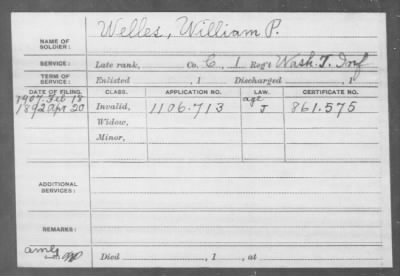 NAME OF SOLDIER: Welles, William P.
SERVICE: Late rank, Co. C, 1 Reg't Wash. T. Inf
TERM OF SERVICE: Enlisted , 1 Discharged , 1
DATE OF FILING. CLASS. APPLICATION NO. LAW. CERTIFICATE NO.
1907 Feb 18 Invalid, age
1892 Apr 20 1106.713 J 861.575
Widow,
Minor,
ADDITIONAL SERVICES:
REMARKS:
Died , 1 , at